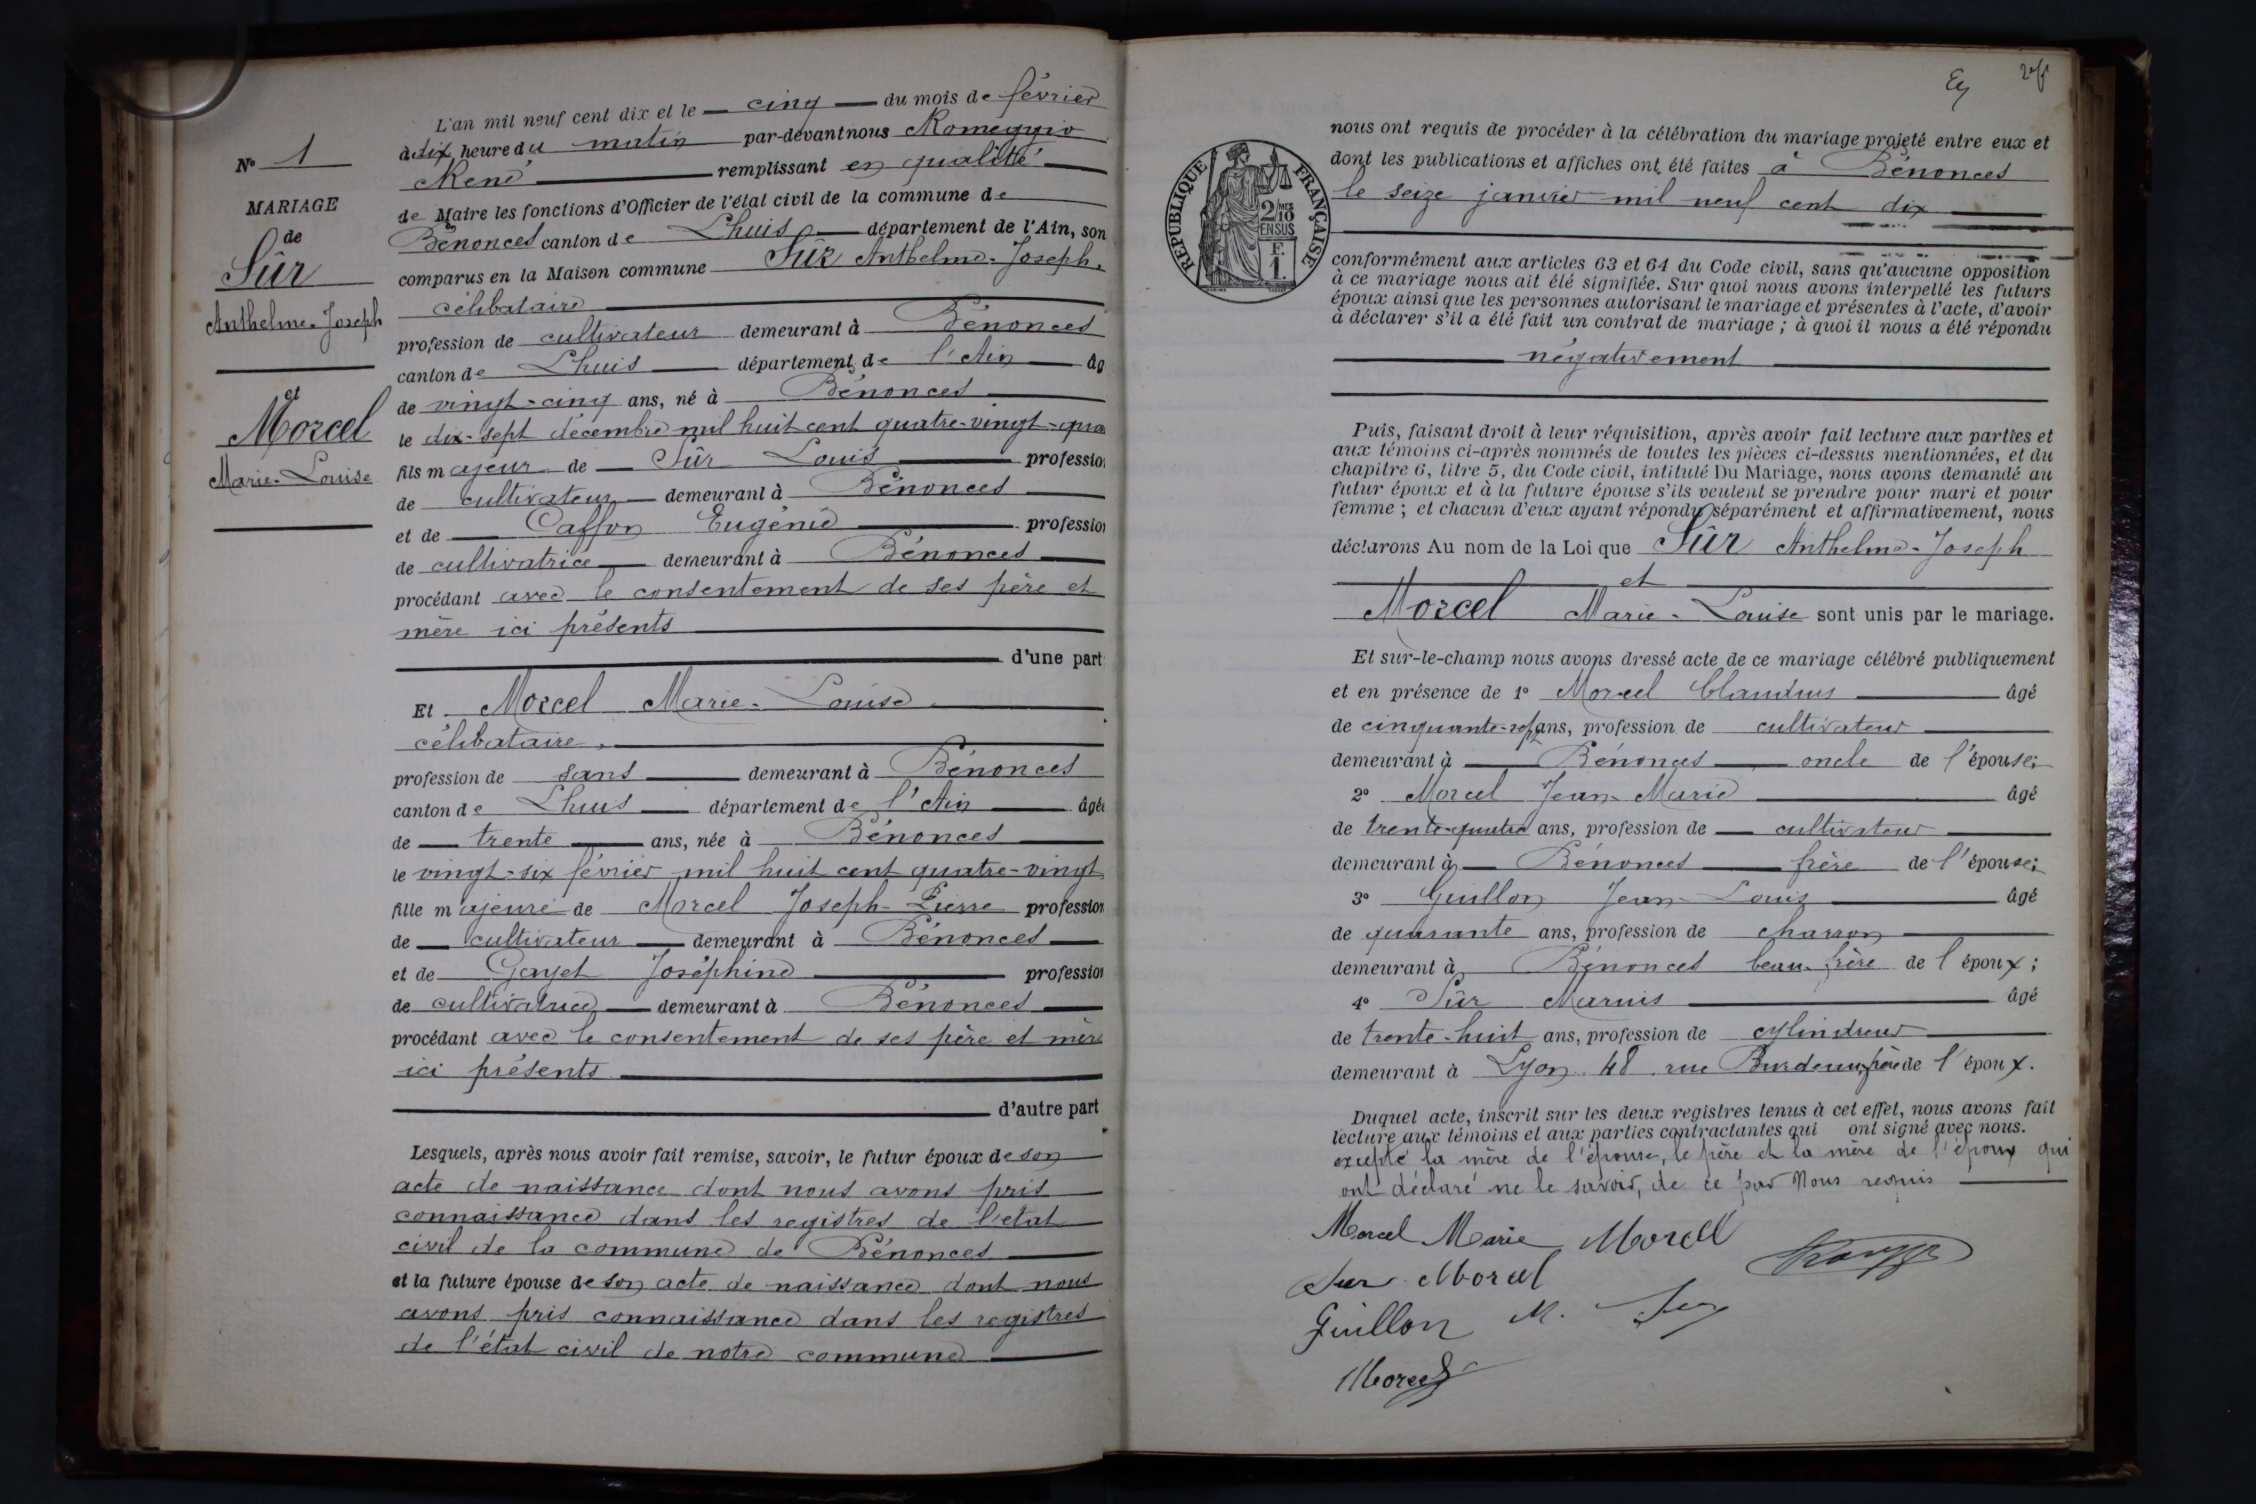 N° 1
MARIAGE
de
Sûr
Anthelme-Joseph
et
Morcel
Marie-Louise
L'an mil neuf cent dix et le cinq du mois de février
à dix heure du matin par-devant nous Romeggio
René remplissant en qualité
de Maire les fonctions d'Officier de l'état civil de la commune de
Bénonces canton de Lhuis département de l'Ain, son
comparus en la Maison commune Sûr Anthelme-Joseph,
célibataire
profession de cultivateur demeurant à Bénonces
canton de Lhuis département de l'Ain âg
de vingt-cinq ans, né à Bénonces
le dix-sept décembre mil huit cent quatre-vingt-qua
fils majeur de Sûr Louis professio
de cultivateur demeurant à Bénonces
et de Caffon Eugénie profession
de cultivatrice demeurant à Bénonces
procédant avec le consentement de ses père et
mère ici présents
d'une part
Et Morcel Marie-Louise
célibataire,
profession de sans demeurant à Bénonces
canton de Lhuis département de l'Ain âgée
de trente ans, née à Bénonces
le vingt-six février mil huit cent quatre-vingt
fille majeure de Morcel Joseph-Pierre profession
de cultivateur demeurant à Bénonces
et de Gayet Joséphine profession
de cultivatrice demeurant à Bénonces
procédant avec le consentement de ses père et mère
ici présents
d'autre part
Lesquels, après nous avoir fait remise, savoir, le futur époux de son
acte de naissance dont nous avons pris
connaissance dans les registres de l'état
civil de la commune de Bénonces
et la future épouse de son acte de naissance dont nous
avons pris connaissance dans les registres
de l'état civil de notre commune
RÉPUBLIQUE FRANÇAISE
2/10 MES
EN SUS
F.
1
nous ont requis de procéder à la célébration du mariage projeté entre eux et
dont les publications et affiches ont été faites à Bénonces
le seize janvier mil neuf cent dix
conformément aux articles 63 et 64 du Code civil, sans qu'aucune opposition
à ce mariage nous ait été signifiée. Sur quoi nous avons interpellé les futurs
époux ainsi que les personnes autorisant le mariage et présentes à l'acte, d'avoir
à déclarer s'il a été fait un contrat de mariage ; à quoi il nous a été répondu
négativement
Puis, faisant droit à leur réquisition, après avoir fait lecture aux parties et
aux témoins ci-après nommés de toutes les pièces ci-dessus mentionnées, et du
chapitre 6, titre 5, du Code civil, intitulé Du Mariage, nous avons demandé au
futur époux et à la future épouse s'ils veulent se prendre pour mari et pour
femme ; et chacun d'eux ayant répondu séparément et affirmativement, nous
déclarons Au nom de la Loi que Sûr Anthelme-Joseph
et
Morcel Marie-Louise sont unis par le mariage.
Et sur-le-champ nous avons dressé acte de ce mariage célébré publiquement
et en présence de 1° Morcel Claudius âgé
de cinquante-sept ans, profession de cultivateur
demeurant à Bénonces oncle de l'épouse;
2° Morcel Jean-Marie âgé
de trente-quatre ans, profession de cultivateur
demeurant à Bénonces frère de l'épouse;
3° Guillon Jean-Louis âgé
de quarante ans, profession de charron
demeurant à Bénonces beau-frère de l'époux;
4° Sûr Marius âgé
de trente-huit ans, profession de cylindreur
demeurant à Lyon 48 rue Burdeau, frère de l'époux.
Duquel acte, inscrit sur les deux registres tenus à cet effet, nous avons fait
lecture aux témoins et aux parties contractantes qui ont signé avec nous.
excepté la mère de l'épouse, le père et la mère de l'époux qui
ont déclaré ne le savoir, de ce par Nous requis
Morcel Marie Morcel
Sur Morcel
Guillon M. Sur
Morcel